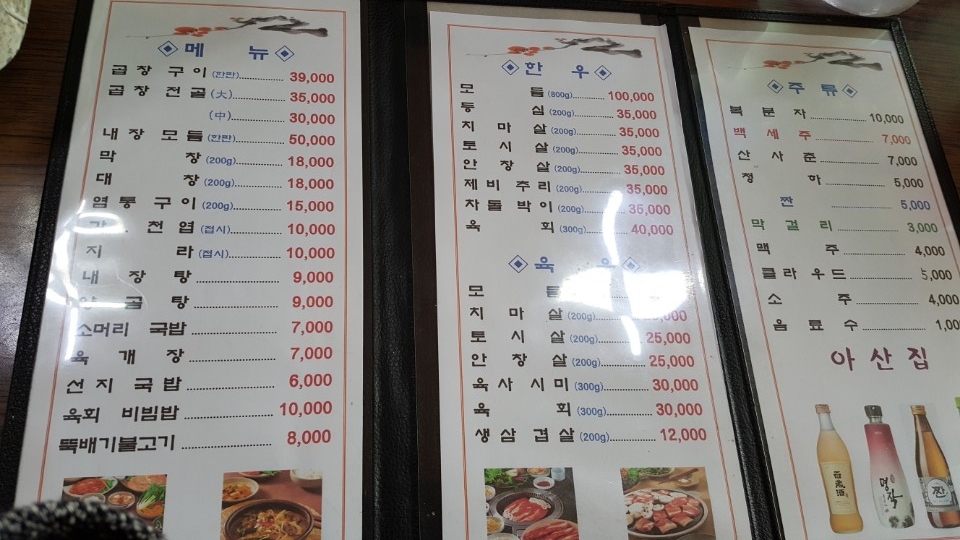 메 뉴
곱창구이 (한판) 39,000
곱창전골 (大) 35,000
(中) 30,000
내장모듬 (한판) 50,000
막 창 (200g) 18,000
대 창 (200g) 18,000
염통구이 (200g) 15,000
천엽 (접시) 10,000
지 라 (접시) 10,000
내 장 탕 9,000
골 탕 9,000
소머리 국밥 7,000
육 개 장 7,000
선지국밥 6,000
육회 비빔밥 10,000
뚝배기불고기 8,000
한 우
모 듬 (800g) 100,000
등 심 (200g) 35,000
치 마 살 (200g) 35,000
토 시 살 (200g) 35,000
안 창 살 (200g) 35,000
제비추리 (200g) 35,000
차돌박이 (200g) 35,000
육 회 (300g) 40,000
육 우
모 듬
치 마 살 (200g)
토 시 살 (200g) 25,000
안 창 살 (200g) 25,000
육사시미 (300g) 30,000
육 회 (300g) 30,000
생삼겹살 (200g) 12,000
주 류
복 분 자 10,000
백 세 주 7,000
산 사 춘 7,000
청 하 5,000
짠 5,000
막 걸 리 3,000
맥 주 4,000
클라우드 5,000
소 주 4,000
음 료 수 1,00
아 산 집